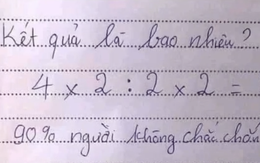 Kết quả là bao nhiêu?
4 x 2 : 2 x 2 =
90% người không chắc chắn